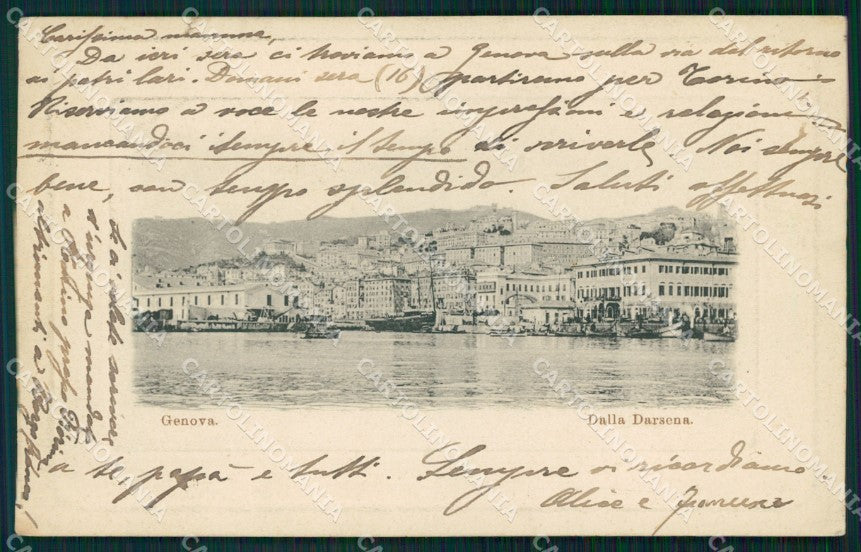 Carissima mamma,
Da ieri sera ci troviamo a Genova sulla via del ritorno
ai patri lari. Domani sera (16) partiremo per Torino.
Riserviamo a voce le nostre impressioni e relazioni
mancandoci sempre il tempo di scriverle. Noi sempre
bene, con tempo splendido. Saluti affettuosi
Genova.
Dalla Darsena.
a te, papà e tutti. Sempre vi ricordiamo.
Alice e
a Torino
altrimenti a
CARTOLINOMANIA